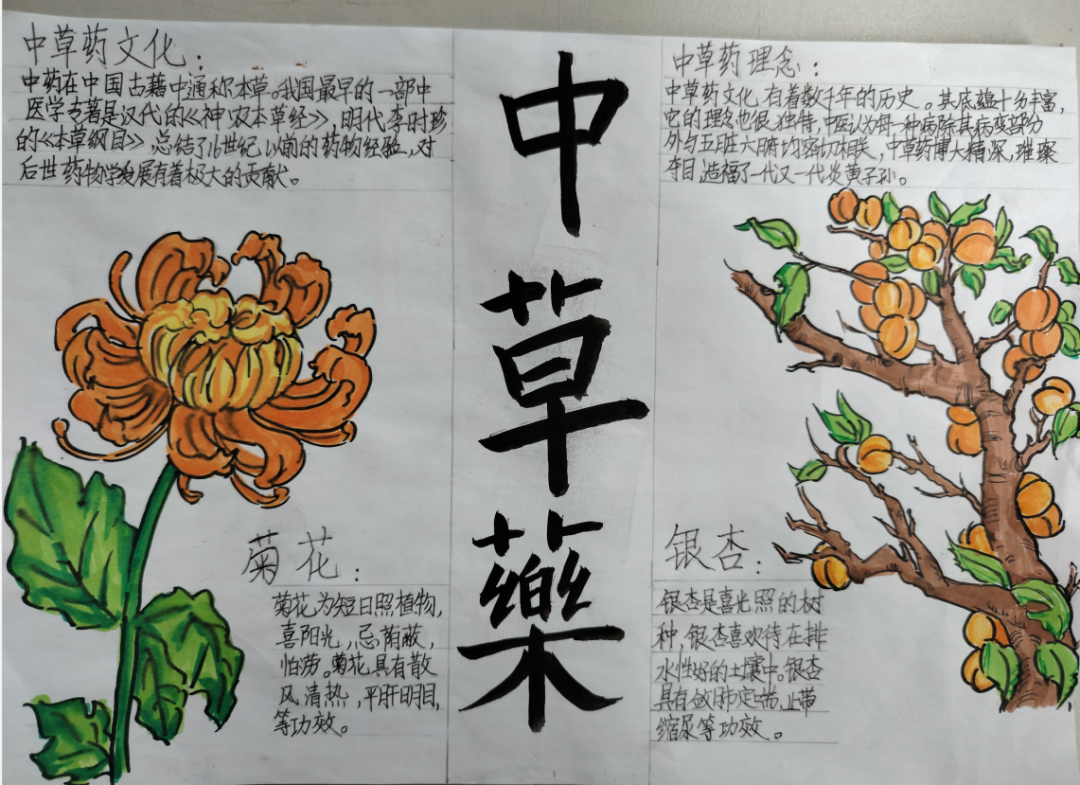 中草药文化：
中药在中国古籍中通称本草。我国最早的一部中
医学专著是汉代的《神农本草经》，明代李时珍
的《本草纲目》总结了16世纪以前的药物经验，对
后世药物学发展有着极大的贡献。
中
草
藥
中草药理念：
中草药文化有着数千年的历史。其底蕴十分丰富，
它的理念也很独特，中医认为每一种病除其病变部分
外与五脏六腑均密切相关，中草药博大精深，璀璨
夺目，造福了一代又一代炎黄子孙。
菊花：
菊花为短日照植物，
喜阳光，忌荫蔽，
怕涝。菊花具有散
风清热，平肝明目，
等功效。
银杏：
银杏是喜光照的树
种，银杏喜欢待在排
水性好的土壤中。银杏
具有敛肺定喘，止带
缩尿等功效。